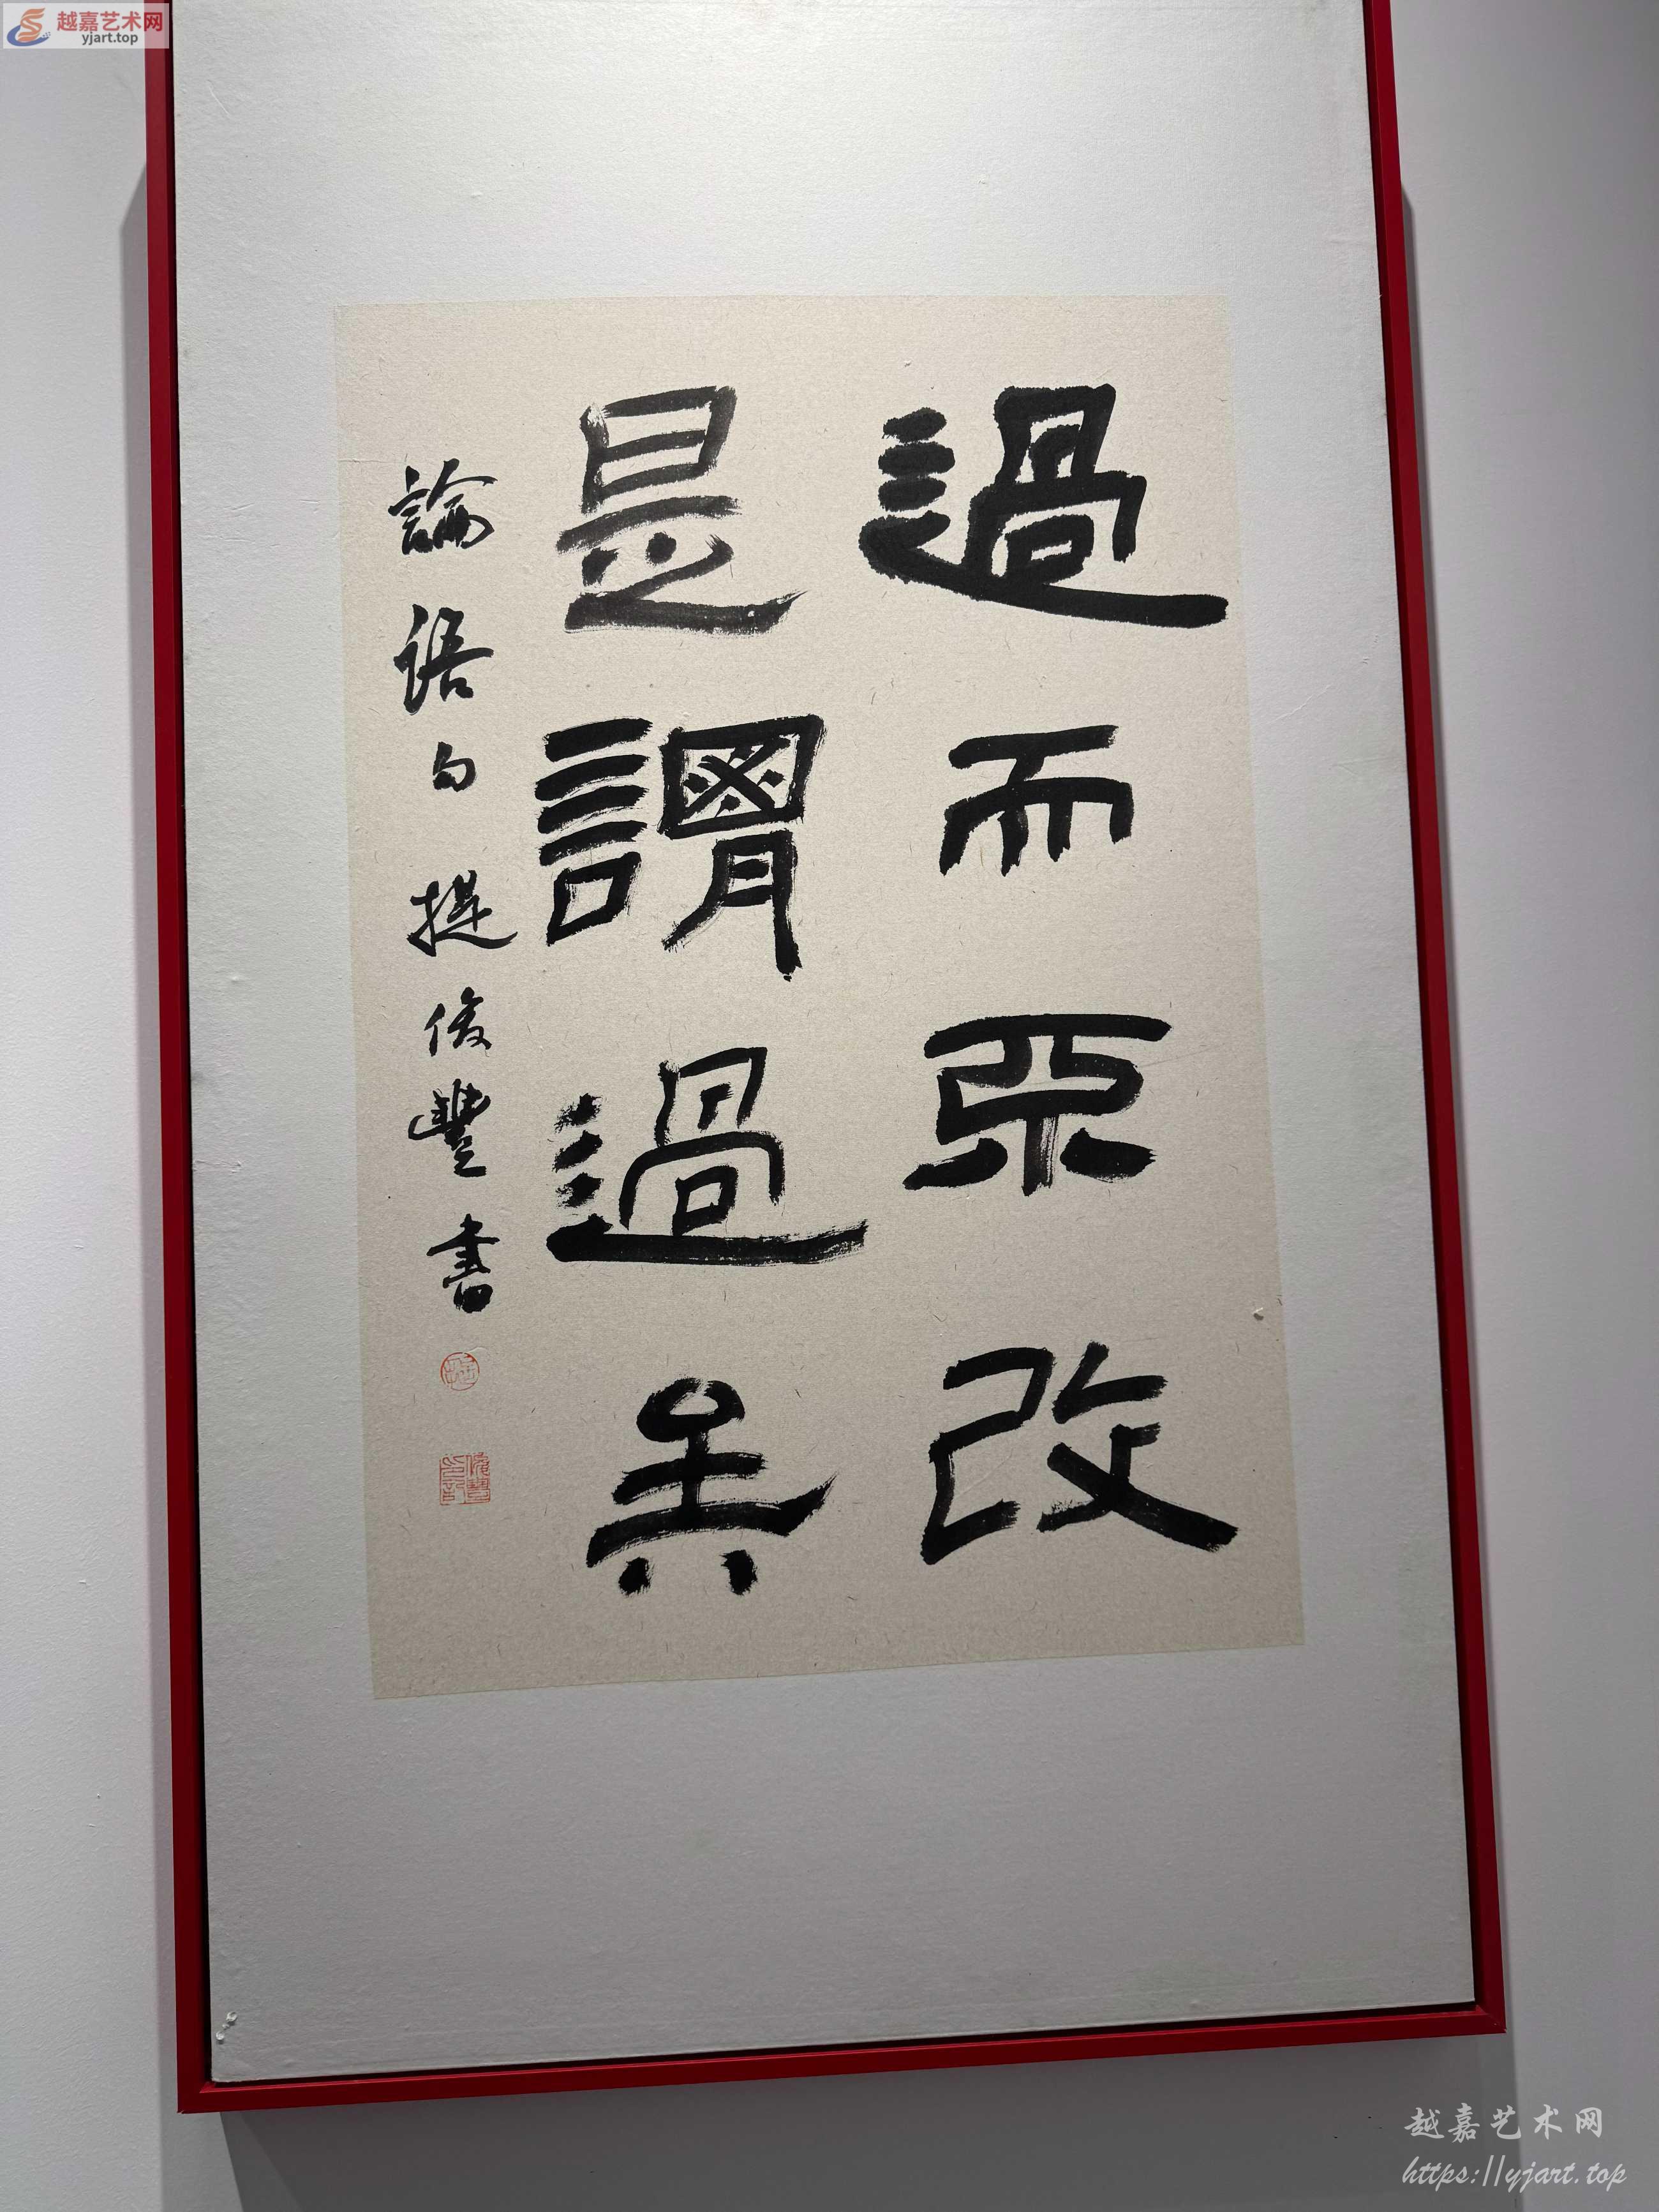 越嘉艺术网
yjart.top
過而不改
是謂過矣
論語句 提俊豐書
越嘉艺术网
https://yjart.top